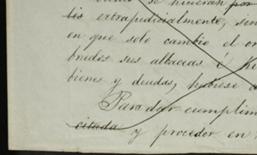 se hicieran por
lis extrapudicialmente, sin
en que solo cambio el or
bredos sus albaceas ó
bienes y deudas, hubiese
Para dar cumplim
citada y proceder en